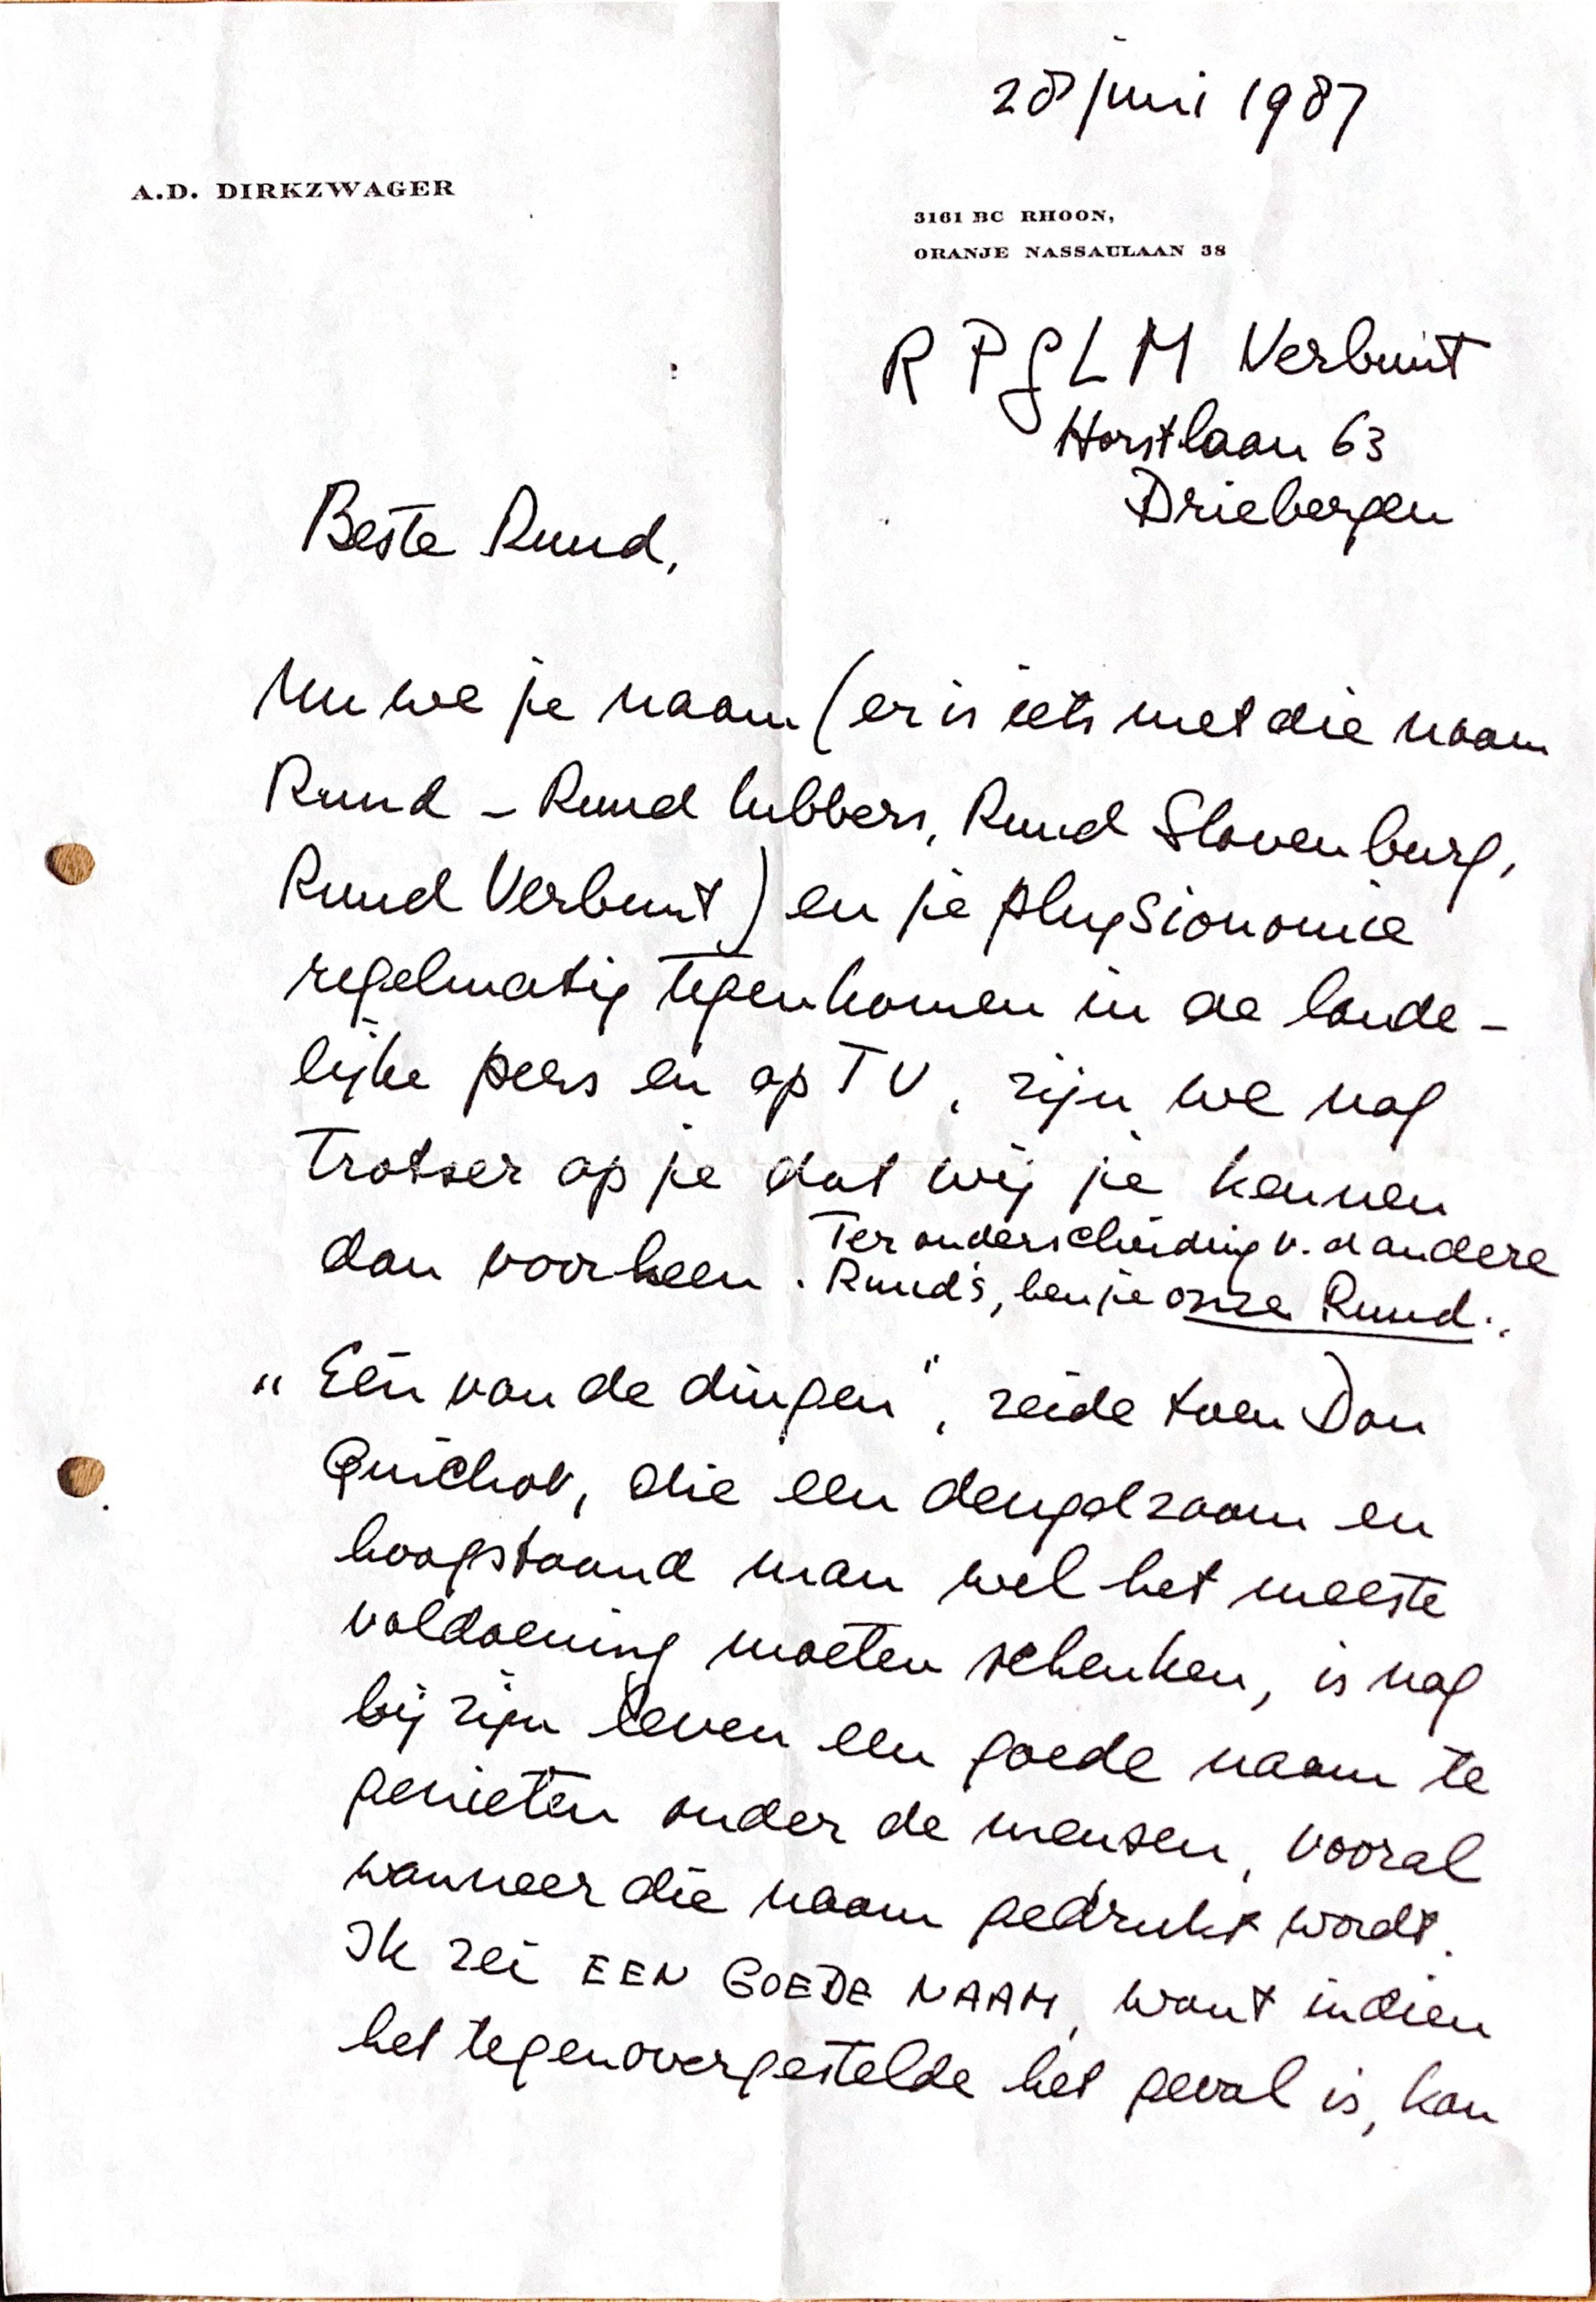 28 juni 1987
A.D. DIRKZWAGER
3161 BC RHOON,
ORANJE NASSAULAAN 38
R P J L M Verbunt
Horstlaan 63
Driebergen
Beste Ruud,
Nu we je naam (er is iets met die naam
Ruud - Ruud Lubbers, Ruud Slovenburg,
Ruud Verbunt) en je physionomie
regelmatig tegenkomen in de lande-
lijke pers en op TV, zijn we nog
trotser op je dat wij je kennen
dan voorheen. Ter onderscheiding v. d andere
Ruud's, ben je onze Ruud.
"Eén van de dingen", zeide toen Don
Quichot, die een deugdzaam en
hoogstaand man wel het meeste
voldoening moeten schenken, is nog
bij zijn leven een goede naam te
genieten onder de mensen, vooral
wanneer die naam gedrukt wordt.
Ik zei EEN GOEDE NAAM, want indien
het tegenovergestelde het geval is, kan